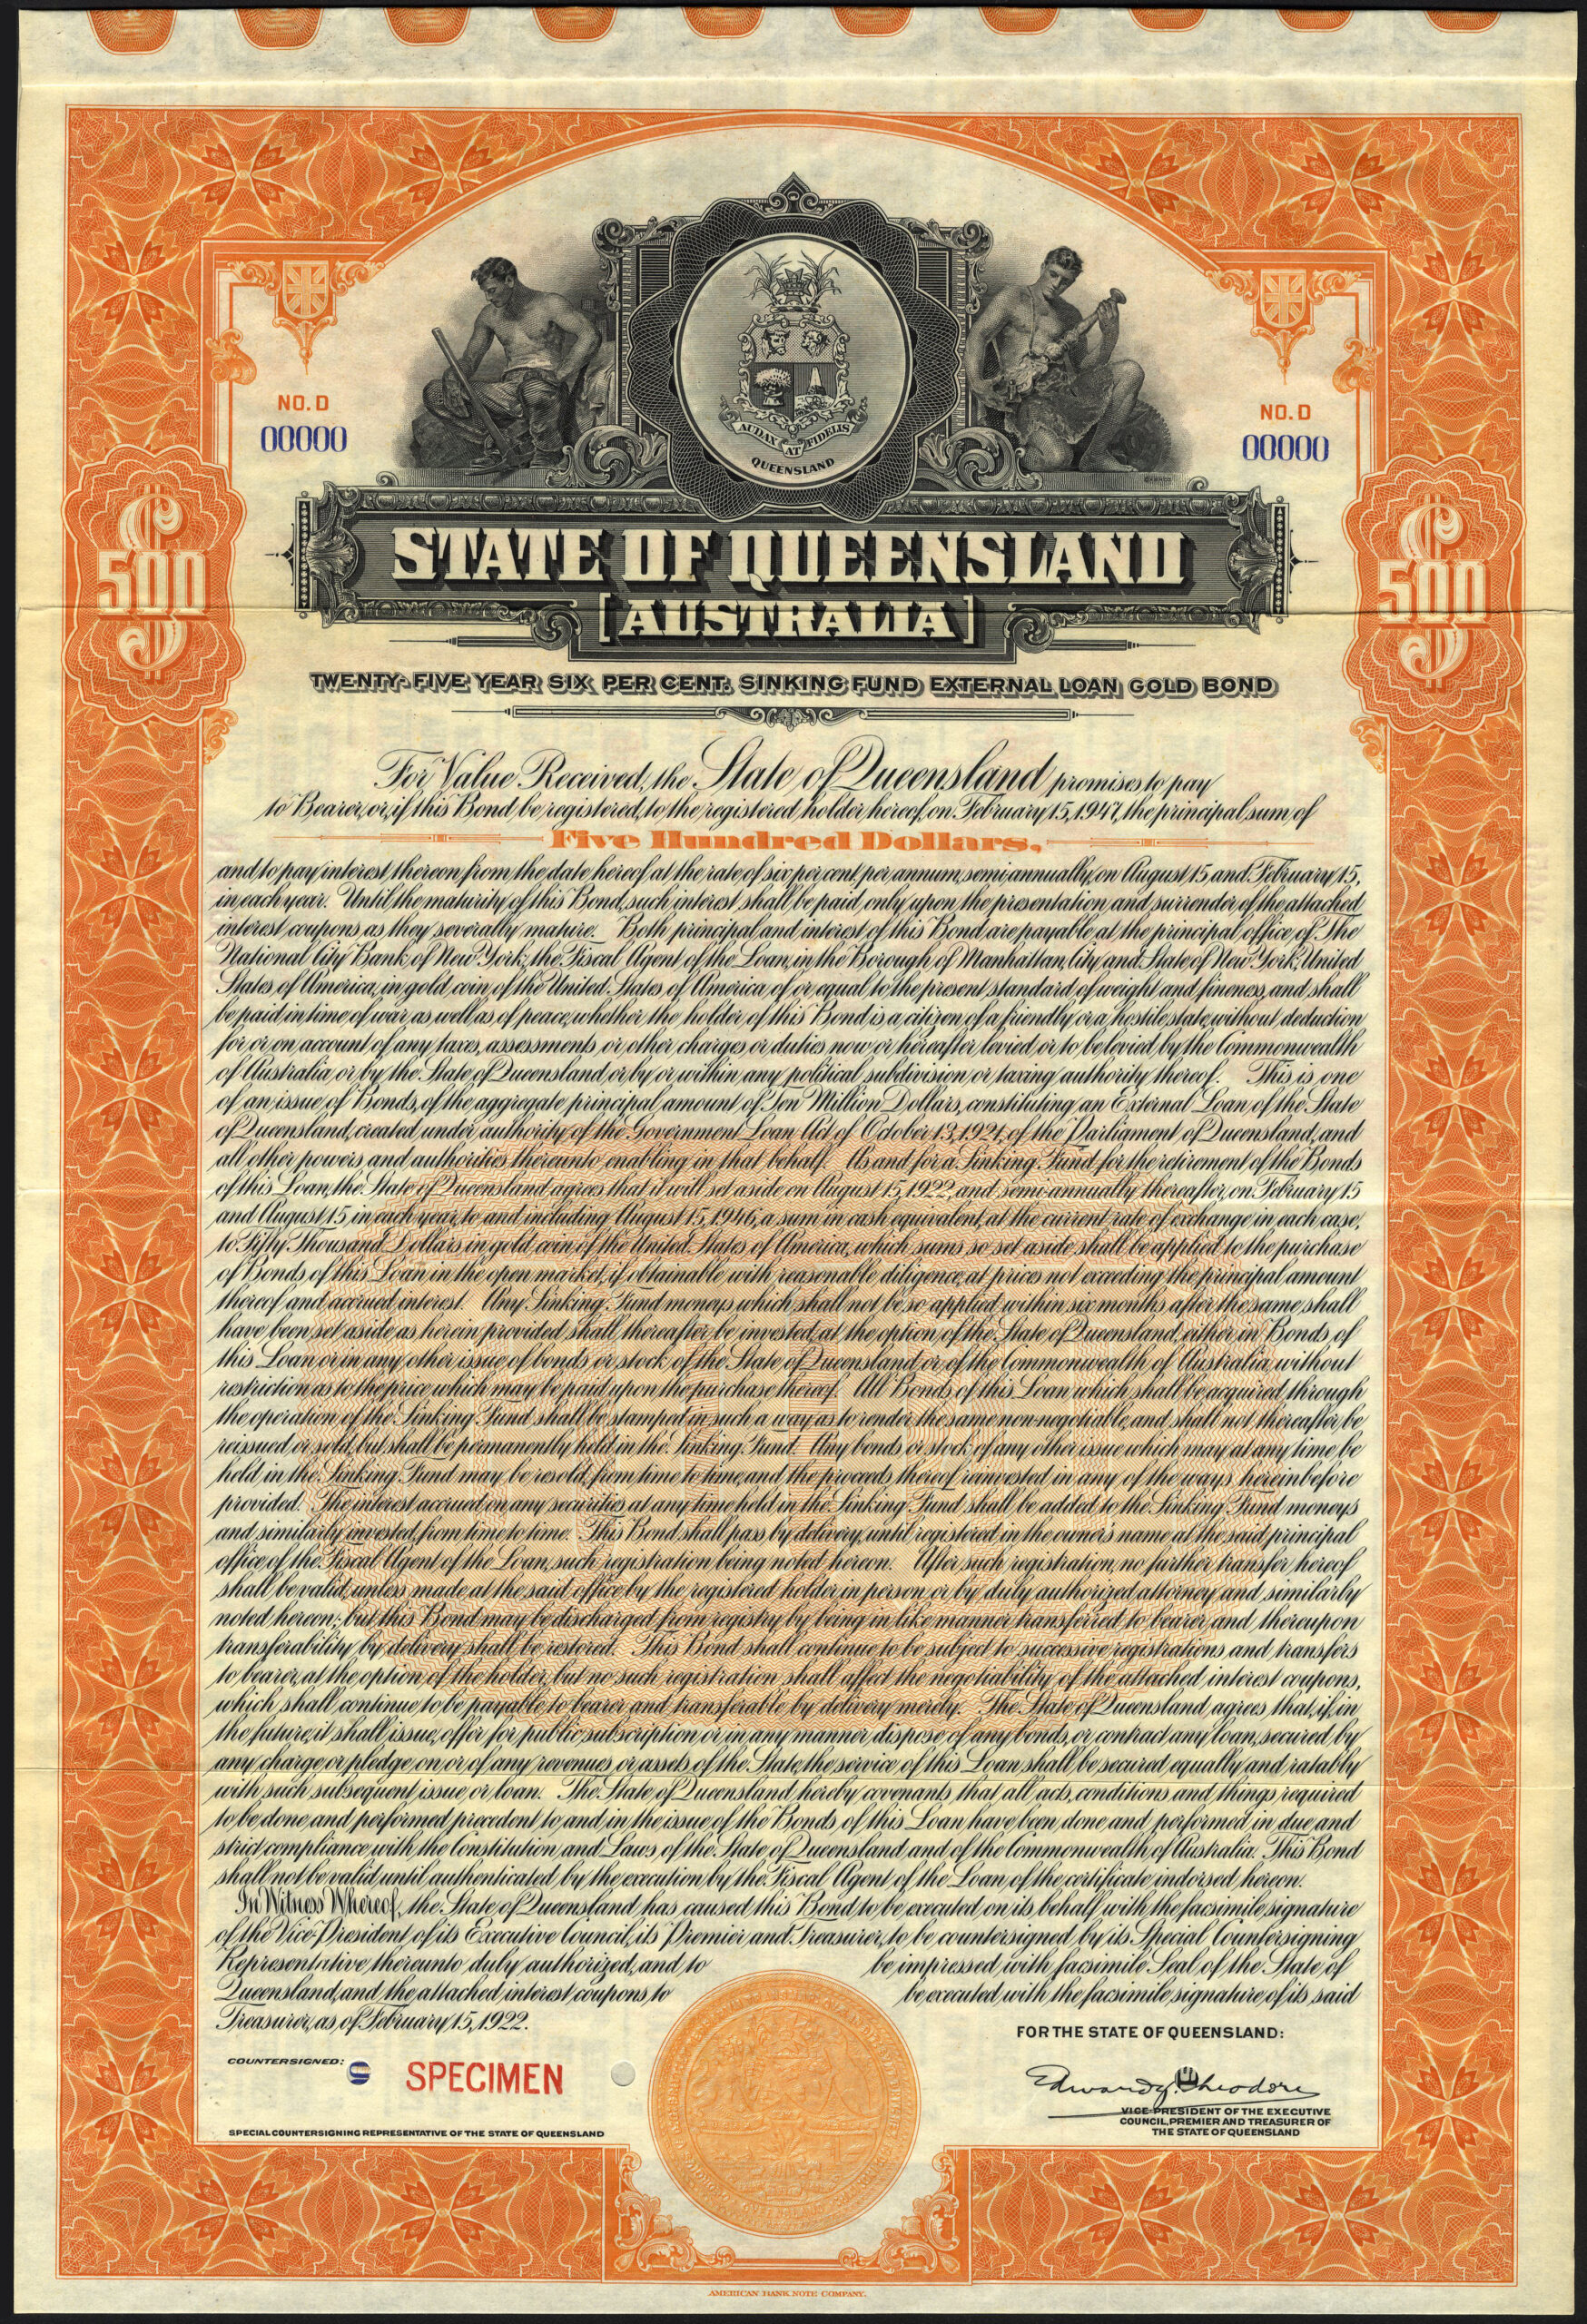 NO. D
00000
NO. D
00000
AUDAX AT FIDELIS
QUEENSLAND
500
500
STATE OF QUEENSLAND
[AUSTRALIA]
TWENTY-FIVE YEAR SIX PER CENT. SINKING FUND EXTERNAL LOAN GOLD BOND
For Value Received, the State of Queensland promises to pay
to Bearer, or, if this Bond be registered, to the registered holder hereof, on February 15, 1947, the principal sum of
Five Hundred Dollars,
and to pay interest thereon from the date hereof at the rate of six per cent. per annum, semi-annually, on August 15 and February 15,
in each year. Until the maturity of this Bond, such interest shall be paid only upon the presentation and surrender of the attached
interest coupons as they severally mature. Both principal and interest of this Bond are payable at the principal office of The
National City Bank of New York, the Fiscal Agent of the Loan, in the Borough of Manhattan, City and State of New York, United
States of America, in gold coin of the United States of America of or equal to the present standard of weight and fineness, and shall
be paid in time of war as well as of peace, whether the holder of this Bond is a citizen of a friendly or a hostile state, without deduction
for or on account of any taxes, assessments or other charges or duties now or hereafter levied or to be levied by the Commonwealth
of Australia or by the State of Queensland or by or within any political subdivision or taxing authority thereof. This is one
of an issue of Bonds, of the aggregate principal amount of Ten Million Dollars, constituting an External Loan of the State
of Queensland, created under authority of the Government Loan Act of October 13, 1921, of the Parliament of Queensland, and
all other powers and authorities thereunto enabling in that behalf. As and for a Sinking Fund for the retirement of the Bonds
of this Loan, the State of Queensland agrees that it will set aside on August 15, 1922, and semi-annually thereafter, on February 15
and August 15, in each year, to and including August 15, 1946, a sum in cash equivalent, at the current rate of exchange in each case,
to Fifty Thousand Dollars in gold coin of the United States of America, which sums so set aside shall be applied to the purchase
of Bonds of this Loan in the open market, if obtainable with reasonable diligence, at prices not exceeding the principal amount
thereof and accrued interest. Any Sinking Fund moneys which shall not be so applied within six months after the same shall
have been set aside as herein provided shall thereafter be invested, at the option of the State of Queensland, either in Bonds of
this Loan or in any other issue of bonds or stock of the State of Queensland or of the Commonwealth of Australia, without
restriction as to the price which may be paid upon the purchase thereof. All Bonds of this Loan which shall be acquired through
the operation of the Sinking Fund shall be stamped in such a way as to render the same non-negotiable, and shall not thereafter be
reissued or sold, but shall be permanently held in the Sinking Fund. Any bonds or stock of any other issue which may at any time be
held in the Sinking Fund may be resold, from time to time, and the proceeds thereof reinvested in any of the ways hereinbefore
provided. The interest accrued on any securities at any time held in the Sinking Fund shall be added to the Sinking Fund moneys
and similarly invested, from time to time. This Bond shall pass by delivery, until registered in the owner's name at the said principal
office of the Fiscal Agent of the Loan, such registration being noted hereon. After such registration, no further transfer hereof
shall be valid, unless made at the said office by the registered holder in person or by duly authorized attorney and similarly
noted hereon; but this Bond may be discharged from registry by being in like manner transferred to bearer and thereupon
transferability by delivery shall be restored. This Bond shall continue to be subject to successive registrations and transfers
to bearer, at the option of the holder, but no such registration shall affect the negotiability of the attached interest coupons,
which shall continue to be payable to bearer and transferable by delivery merely. The State of Queensland agrees that, if, in
the future, it shall issue, offer for public subscription or in any manner dispose of any bonds, or contract any loan, secured by
any charge or pledge on or of any revenues or assets of the State, the service of this Loan shall be secured equally and ratably
with such subsequent issue or loan. The State of Queensland hereby covenants that all acts, conditions and things required
to be done and performed precedent to and in the issue of the Bonds of this Loan have been done and performed in due and
strict compliance with the Constitution and Laws of the State of Queensland and of the Commonwealth of Australia. This Bond
shall not be valid until authenticated by the execution by the Fiscal Agent of the Loan of the certificate indorsed hereon.
In Witness Whereof, the State of Queensland has caused this Bond to be executed on its behalf with the facsimile signature
of the Vice-President of its Executive Council, its Premier and Treasurer, to be countersigned by its Special Countersigning
Representative thereunto duly authorized, and to be impressed with facsimile Seal of the State of
Queensland, and the attached interest coupons to be executed with the facsimile signature of its said
Treasurer, as of February 15, 1922.
FOR THE STATE OF QUEENSLAND:
COUNTERSIGNED:
SPECIMEN
Edward G. Theodore
VICE-PRESIDENT OF THE EXECUTIVE
COUNCIL, PREMIER AND TREASURER OF
THE STATE OF QUEENSLAND
SPECIAL COUNTERSIGNING REPRESENTATIVE OF THE STATE OF QUEENSLAND
AMERICAN BANK NOTE COMPANY.